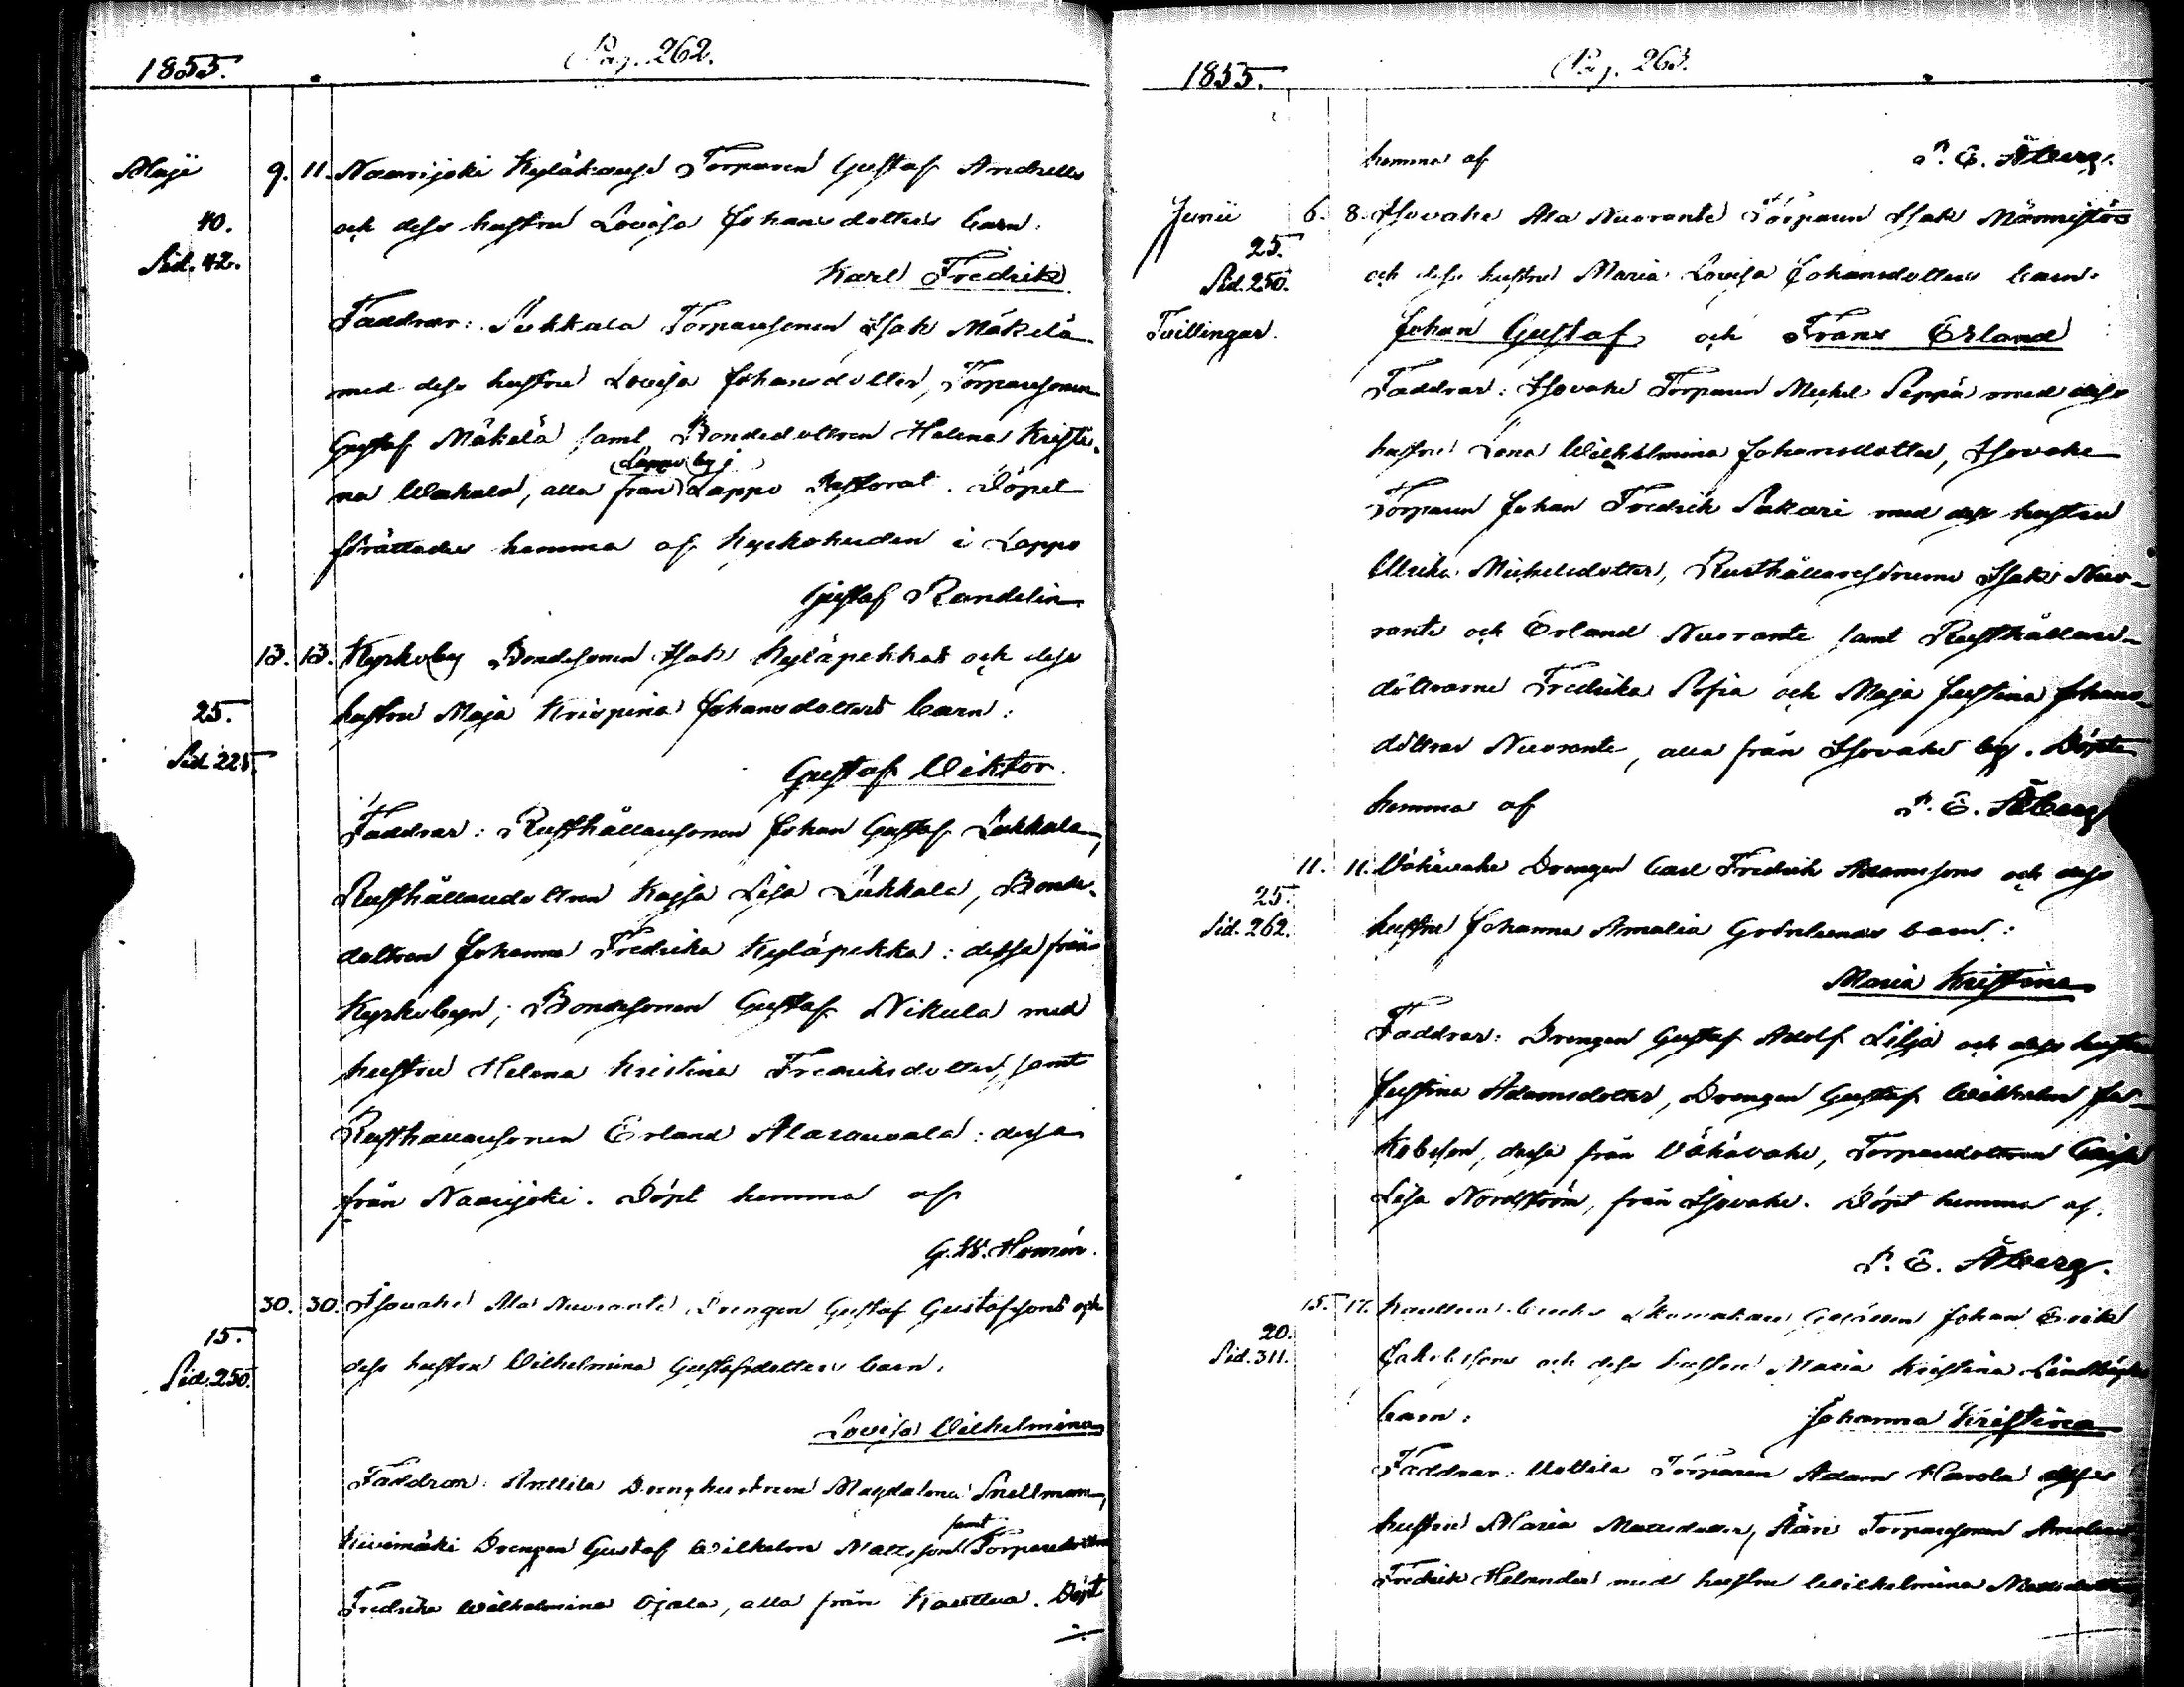 1855. Pag. 262.
Maji 9. 11. Naarijoki Kyläkarhi Torparen Gustaf Andrelles
40. och dess hustru Lovisa Johansdotters barn:
Sid. 42. Karl Fredrik
Faddrar: Torparesonen Isak Mäkelä
med dess hustru Lovisa Johansdotter, Torparesonen
Gustaf Mäkelä samt Bondedottren Helena Kristi-
na Uotila, alla från (Lappo by i) Lappo Pastorat. Döpet
förättades hemma af Kyrkoherden i Lappo
Gustaf Randelin
13. 13. Kyrkoby Bondesonen Isak Kyläpekkas och dess
25. hustru Maja Krispina Johansdotters barn:
Sid 225. Gustaf Viktor.
Faddrar: Rusthållaresonen Johan Gustaf Lukkala,
Rusthållaredottren Kajsa Lisa Lukkala, Bonde-
dottren Johanna Fredrika Kyläpekka: dessa från
Kyrkobyn; Bondesonen Gustaf Nikula med
hustru Helena Kristina Fredriksdotter, samt
Rusthållaresonen Erland Alarauvala: dessa
från Naarijoki. Döpt hemma af
G. W. Homén.
30. 30. Isovahe Ala Nuorante Drengen Gustaf Gustafssons och
15. dess hustru Vilhelmina Gustafsdotters barn:
Sid. 250. Lovisa Vilhelmina
Faddrar: Anttila Drenghustrun Magdalena Snellman,
Kivimäki Drengen Gustaf Wilhelm Matsson samt Torparedottren
Fredrika Wilhelmina Ojala, alla från Kauttua. Döpt
1855. Pag. 263.
hemma af F. E. Åberg.
Junii 6. 8. Isovahe Ala Nuorante Torparen Isak Männistös
25.
Sid. 250. och dess hustru Maria Lovisa Johansdotters barn:
Tvillingar. Johan Gustaf och Frans Erland
Faddrar: Isovahe Torparen Michel Seppä med dess
hustru Lena Wilhelmina Johansdotter, Isovahe
Torparen Johan Fredrik Sakari med dess hustru
Ulrika Michelsdotter, Rusthållaresönerne Isak Nuo-
rante och Erland Nuorante samt Rusthållare-
döttrarne Fredrika Sofia och Maja Justina Johans-
döttrar Nuorante, alla från Isovahe by. Döpte
hemma af F. E. Åberg
11. 11. Vähävahe Drengen Carl Fredrik Adamssons och dess
25.
Sid. 262. hustru Johanna Amalia Grönlunds barn:
Maria Kristina
Faddrar: Drengen Gustaf Adolf Lilja och dess hustru
Justina Adamsdotter, Drengen Gustaf Wilhelm Ja-
kobsson, dessa från Vähävahe, Torparedottren Cajsa
Lisa Nordström, från Isovahe. Döpt hemma af
F. E. Åberg.
15. 17. Kauttua Bruks Skomakare Gesällen Johan Erik
20.
Sid. 311. Jakobssons och dess hustru Maria Kristina
barn: Johanna Kristina
Faddrar: Torparen Adam Harola dess
hustru Maria Matsdotter, Torparesonen
Fredrik Helander med hustru Wilhelmina Matsdotter